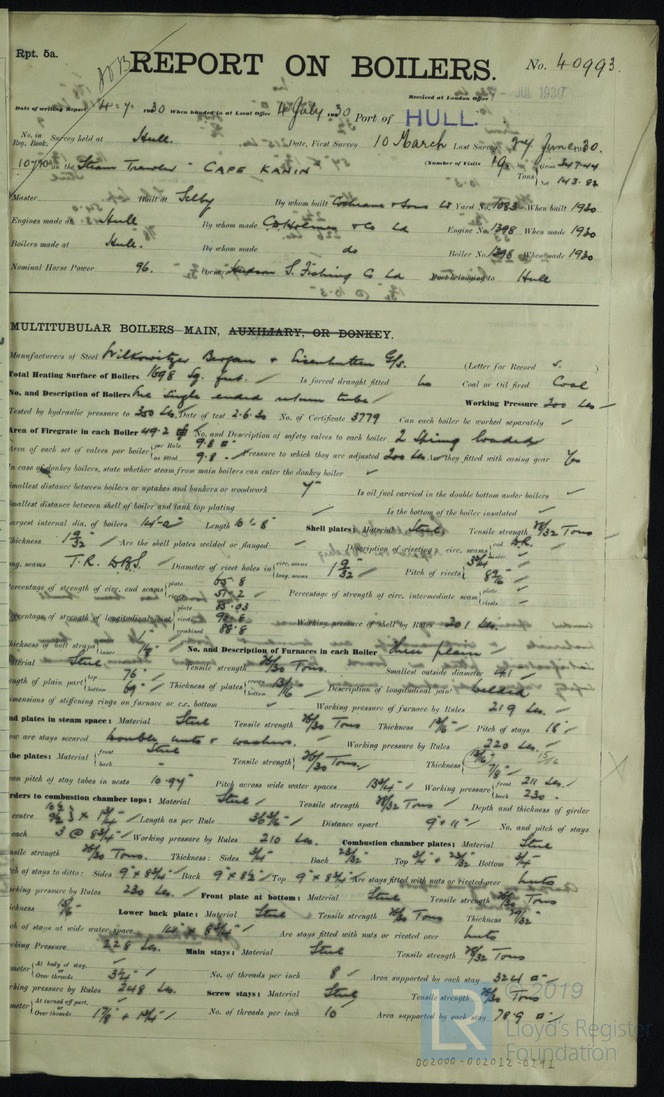 Rpt. 5a.
REPORT ON BOILERS.
No. 40993.
Received at London Office
JUL 1930
Date of writing Report 4-7-1930 When handed in at Local Office 4 July 1930 Port of HULL.
No. in Reg. Book. Survey held at Hull. Date, First Survey 10 March Last Survey June 1930.
on the Steam Trawler "CAPE KANIN" (Number of Visits 19) Gross 347.44 Tons Net 143.82
Master Built at Selby By whom built Cochrane & Sons Ld Yard No. 1083 When built 1930
Engines made at Hull By whom made C.D. Holmes & Co Ld Engine No. 1398 When made 1930
Boilers made at Hull. By whom made do Boiler No. 1398 When made 1930
Nominal Horse Power 96. Owners Hudson S. Fishing Co Ld Port belonging to Hull
MULTITUBULAR BOILERS MAIN, AUXILIARY, OR DONKEY.
Manufacturers of Steel Witkowitzer Bergbau & Eisenhutten G/s. (Letter for Record S.)
Total Heating Surface of Boilers 1698 Sq. feet. Is forced draught fitted No Coal or Oil fired Coal
No. and Description of Boilers One Single ended return tube Working Pressure 200 Lbs
Tested by hydraulic pressure to 350 Lbs. Date of test 2.6.30 No. of Certificate 3779 Can each boiler be worked separately
Area of Firegrate in each Boiler 49.2 No. and Description of safety valves to each boiler 2 Spring loaded
Area of each set of valves per boiler per Rule 9.8 as fitted 9.8 Pressure to which they are adjusted 200 Lbs Are they fitted with easing gear Yes
In case of donkey boilers, state whether steam from main boilers can enter the donkey boiler
Smallest distance between boilers or uptakes and bunkers or woodwork Is oil fuel carried in the double bottom under boilers
Smallest distance between shell of boiler and tank top plating Is the bottom of the boiler insulated
Largest internal dia. of boilers 14'-2" Length 10'-8" Shell plates: Material Steel Tensile strength 28/32 Tons
Thickness 1 9/32 Are the shell plates welded or flanged Description of riveting: circ. seams end D.R.
long. seams T.R. D.B.S. Diameter of rivet holes in circ. seams long. seams 1 9/32 Pitch of rivets
Percentage of strength of circ. end seams plate 65.8 rivets 51.2 Percentage of strength of circ. intermediate seam plate rivets
Percentage of strength of longitudinal joint plate 85.03 rivets 90.8 combined 88.8 Working pressure of shell by Rules 201 Lbs.
Thickness of butt straps No. and Description of Furnaces in each Boiler Three plain
Material Steel Tensile strength 26/30 Tons. Smallest outside diameter 41
Length of plain part top 76" bottom 69" Thickness of plates crown bottom 13/16 Description of longitudinal joint welded
Dimensions of stiffening rings on furnace or c.c. bottom Working pressure of furnace by Rules 219 Lbs.
End plates in steam space: Material Steel Tensile strength 26/30 Tons Thickness Pitch of stays 18"
How are stays secured Double nuts & washers. Working pressure by Rules 220 Lbs.
Tube plates: Material front Steel back " Tensile strength 26/30 Tons. Thickness 15/16 7/8
Mean pitch of stay tubes in nests 10.94" Pitch across wide water spaces 13 3/4" Working pressure front 211 Lbs. back 230
Girders to combustion chamber tops: Material Steel Tensile strength 28/32 Tons Depth and thickness of girder
at centre Length as per Rule Distance apart 9" & 11" No. and pitch of stays
in each 3 @ 8 3/4" Working pressure by Rules 210 Lbs. Combustion chamber plates: Material Steel
Tensile strength 26/30 Tons. Thickness: Sides 3/4 Back 23/32 Top 3/4 & 23/32 Bottom 3/4
Pitch of stays to ditto: Sides 9" x 8 3/4" Back 9" x 8 1/2" Top 9" x 8 3/4" Are stays fitted with nuts or riveted over Nuts
Working pressure by Rules 230 Lbs. Front plate at bottom: Material Steel Tensile strength 26/30 Tons
Thickness 15/16 Lower back plate: Material Steel Tensile strength 26/30 Tons Thickness 29/32
Pitch of stays at wide water space Are stays fitted with nuts or riveted over Nuts
Working Pressure 228 Lbs. Main stays: Material Steel Tensile strength 28/32 Tons
Diameter At body of stay, or Over threads 3 1/4" No. of threads per inch 8 Area supported by each stay 324
Working pressure by Rules 248 Lbs. Screw stays: Material Steel Tensile strength 26/30 Tons
Diameter At turned off part, or Over threads 1 7/8 & 1 3/4" No. of threads per inch 10 Area supported by each stay 78.9
© 2019
LR
Lloyd's Register
Foundation
002000-002012-0191